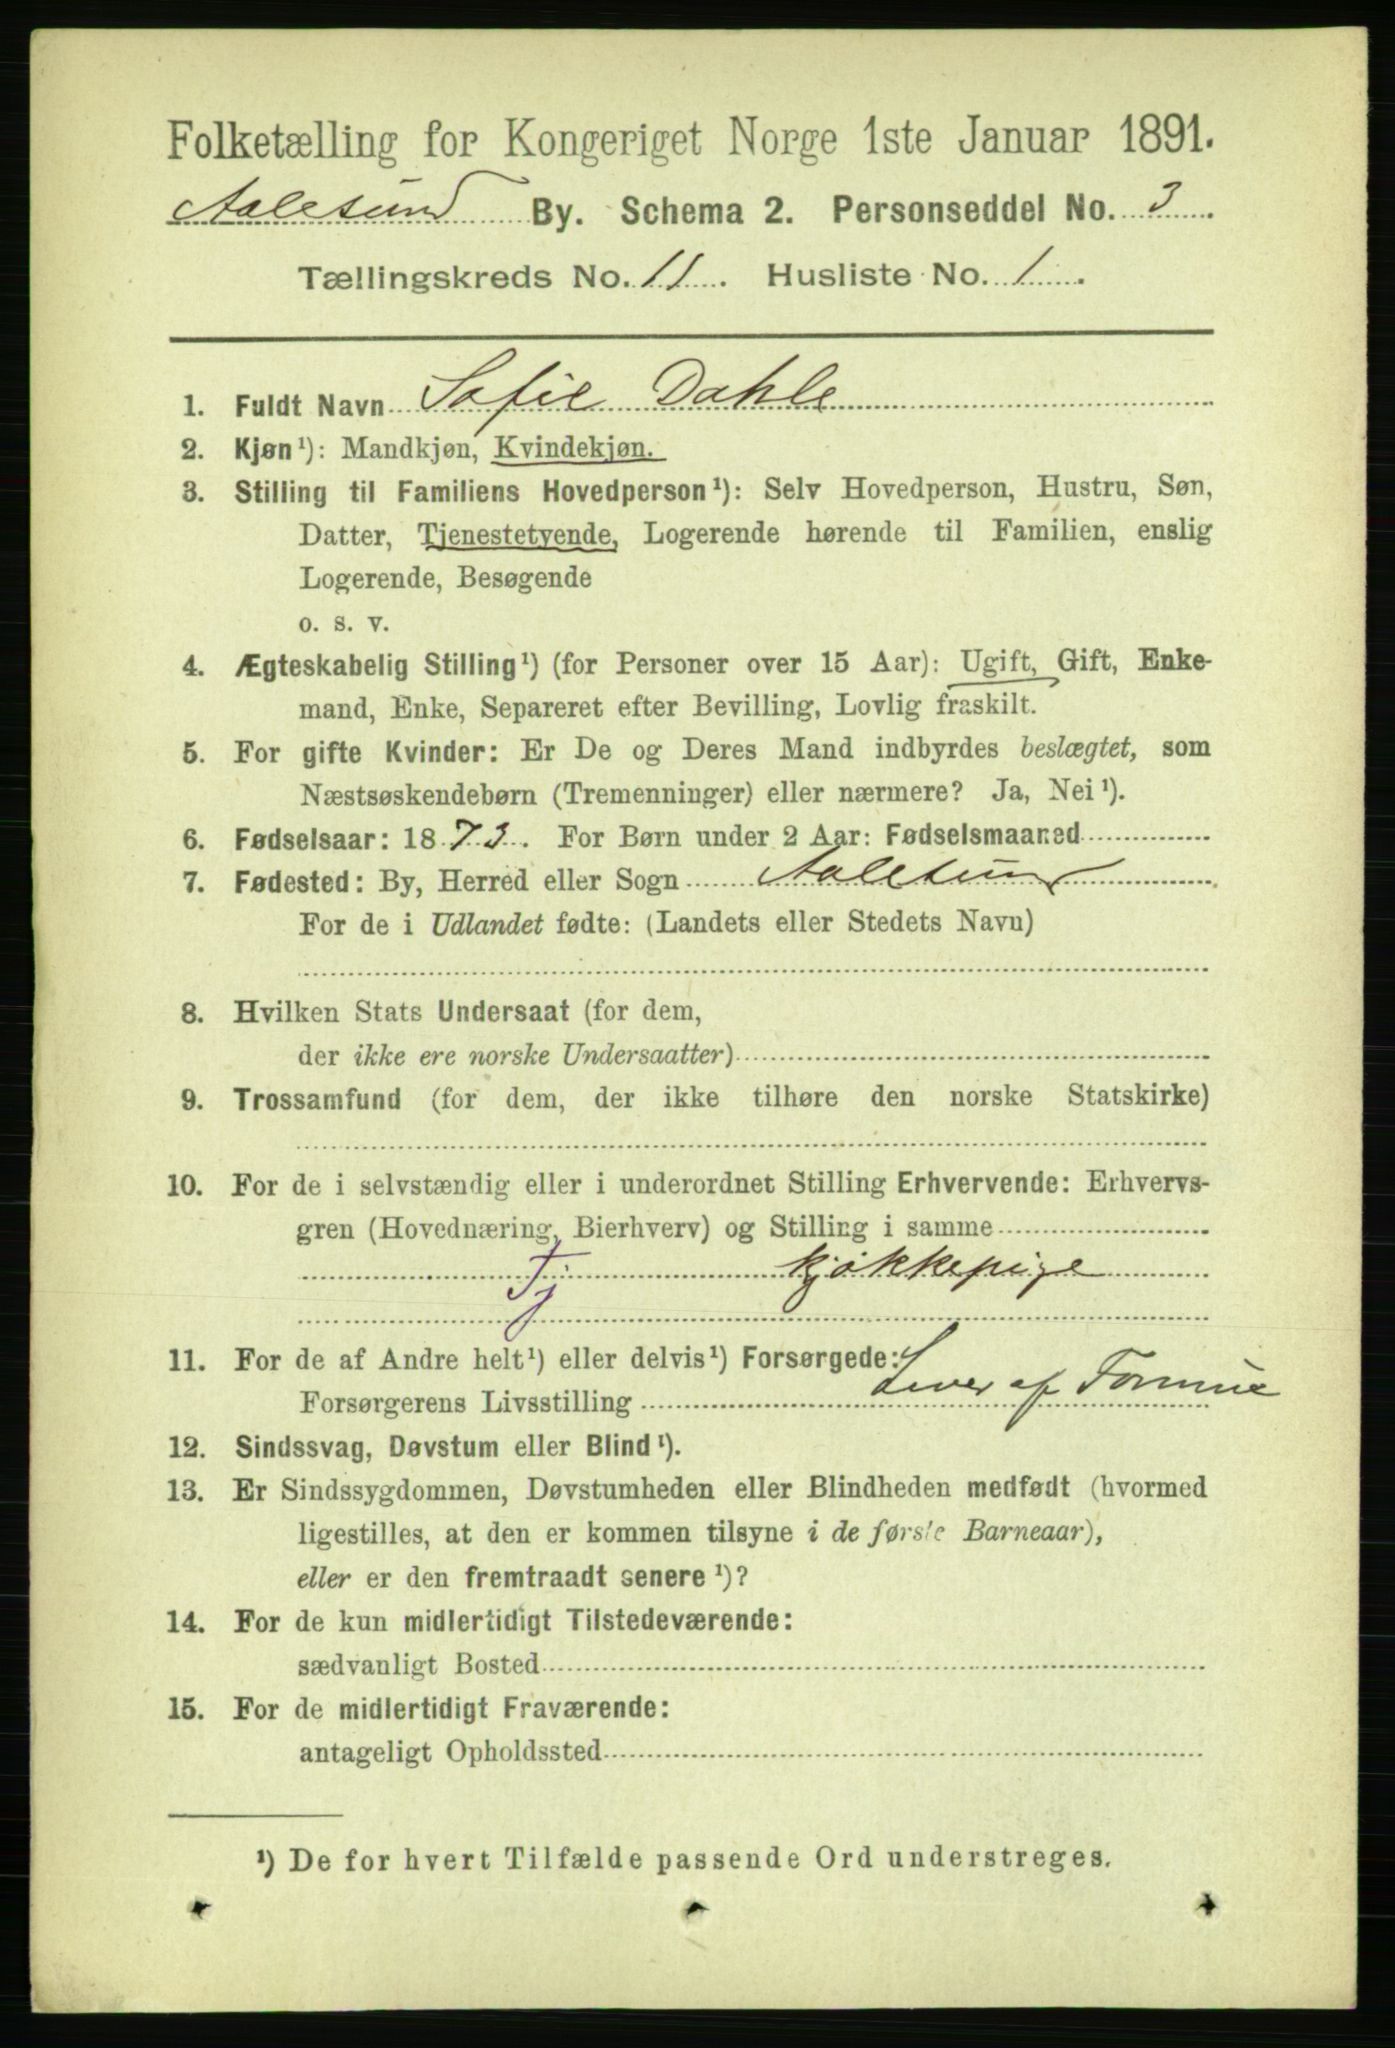 Folketælling for Kongeriget Norge 1ste Januar 1891.
Aalesund By. Schema 2. Personseddel No. 3.
Tællingskreds No. 11. Husliste No. 1.
1. Fuldt Navn Sofie Dahle
2. Kjøn¹): Mandkjøn, Kvindekjøn.
3. Stilling til Familiens Hovedperson¹): Selv Hovedperson, Hustru, Søn,
Datter, Tjenestetyende, Logerende hørende til Familien, enslig
Logerende, Besøgende
o. s. v.
4. Ægteskabelig Stilling¹) (for Personer over 15 Aar): Ugift, Gift, Enke-
mand, Enke, Separeret efter Bevilling, Lovlig fraskilt.
5. For gifte Kvinder: Er De og Deres Mand indbyrdes beslægtet, som
Næstsøskendebørn (Tremenninger) eller nærmere? Ja, Nei¹).
6. Fødselsaar: 1873. For Børn under 2 Aar: Fødselsmaaned
7. Fødested: By, Herred eller Sogn Aalesund
For de i Udlandet fødte: (Landets eller Stedets Navn)
8. Hvilken Stats Undersaat (for dem,
der ikke ere norske Undersaatter)
9. Trossamfund (for dem, der ikke tilhøre den norske Statskirke)
10. For de i selvstændig eller i underordnet Stilling Erhvervende: Erhvervs-
gren (Hovednæring, Bierhverv) og Stilling i samme
Tj kjøkkepige
11. For de af Andre helt¹) eller delvis¹) Forsørgede:
Forsørgerens Livsstilling Lever af Formue
12. Sindssvag, Døvstum eller Blind¹).
13. Er Sindssygdommen, Døvstumheden eller Blindheden medfødt (hvormed
ligestilles, at den er kommen tilsyne i de første Barneaar),
eller er den fremtraadt senere¹)?
14. For de kun midlertidigt Tilstedeværende:
sædvanligt Bosted
15. For de midlertidigt Fraværende:
antageligt Opholdssted
¹) De for hvert Tilfælde passende Ord understreges.